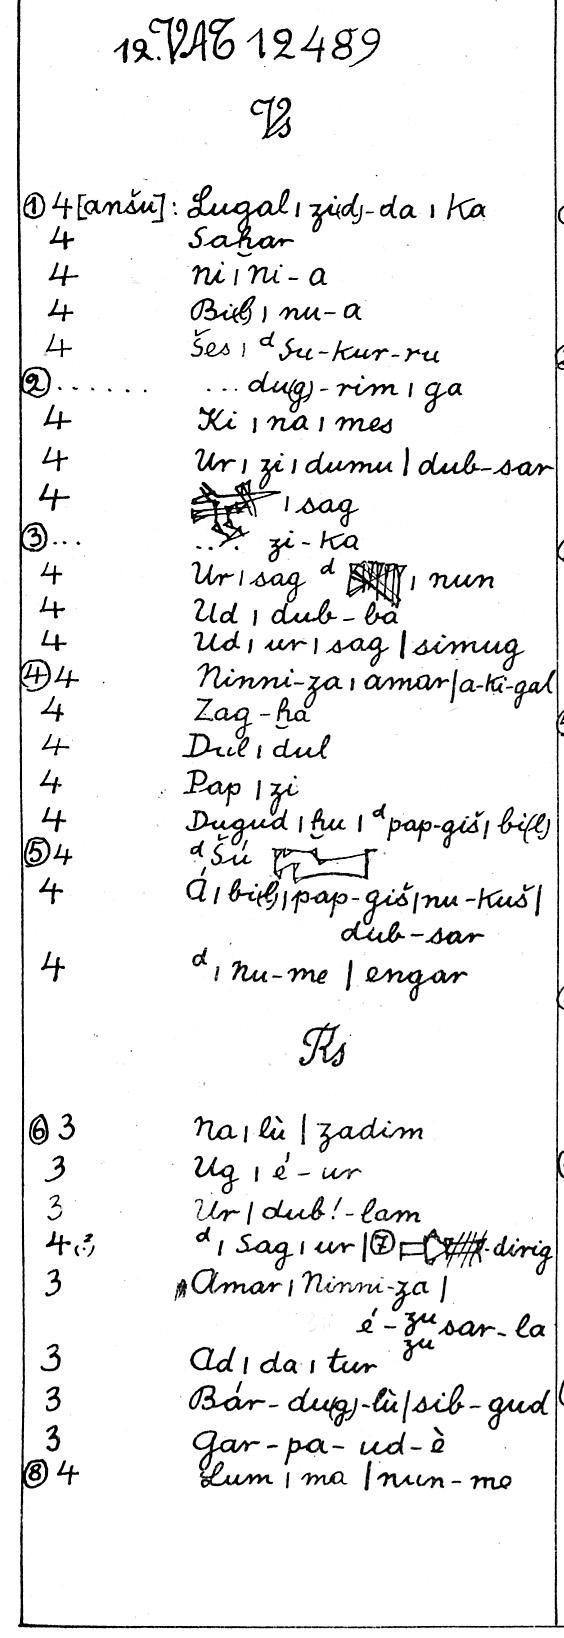 12. VAT 12489
Vs
① 4 [anšu]: Lugal ı zi(d)-da ı Ka
4 Saḫar
4 ni ı ni-a
4 Bi(l) ı nu-a
4 Šes ı ᵈSu-kur-ru
② ...... ... du(g)-rim ı ga
4 Ki ı na ı mes
4 Ur ı zi ı dumu | dub-sar
4 ı sag
③ ... .... zi-ka
4 Ur ı sag ᵈ ı nun
4 Ud ı dub-ba
4 Ud ı ur ı sag | simug
④ 4 Ninni-za ı amar | a-ki-gal
4 Zag-ḫa
4 Dul ı dul
4 Pap ı zi
4 Dugud ı ḫu ı ᵈpap-giš ı bi(l)
⑤ 4 ᵈŠú
4 Á ı bi(l) ı pap-giš ı nu-kuš |
dub-sar
4 ᵈ ı nu-me | engar
Rs
⑥ 3 Na ı lù | zadim
3 Ug ı é-ur
3 Ur ı dub!-lam
4(?) ᵈ ı Sag ı ur | ⑦ -dirig
3 Amar ı Ninni-za |
é-zu sar-la
zu
3 Ad ı da ı tur
3 Bár-du(g)-lù | sib-gud
3 Gar-pa-ud-è
⑧ 4 Lum ı ma | nun-me